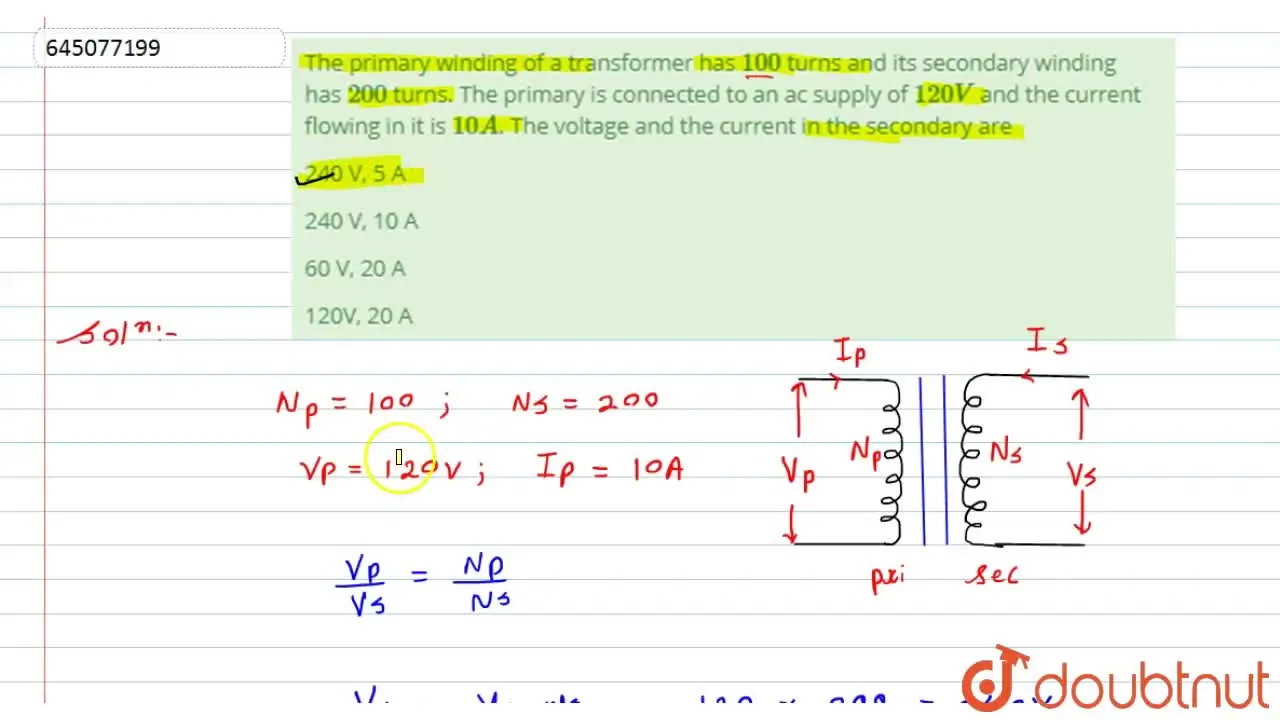 645077199
The primary winding of a transformer has 100 turns and its secondary winding
has 200 turns. The primary is connected to an ac supply of 120V and the current
flowing in it is 10A. The voltage and the current in the secondary are
240 V, 5 A
240 V, 10 A
60 V, 20 A
120V, 20 A
Solⁿ:-
Np = 100 ; Ns = 200
Vp = 120V ; Ip = 10A
Vp/Vs = Np/Ns
Ip
Is
Vp
Np
Ns
Vs
pri
sec
doubtnut